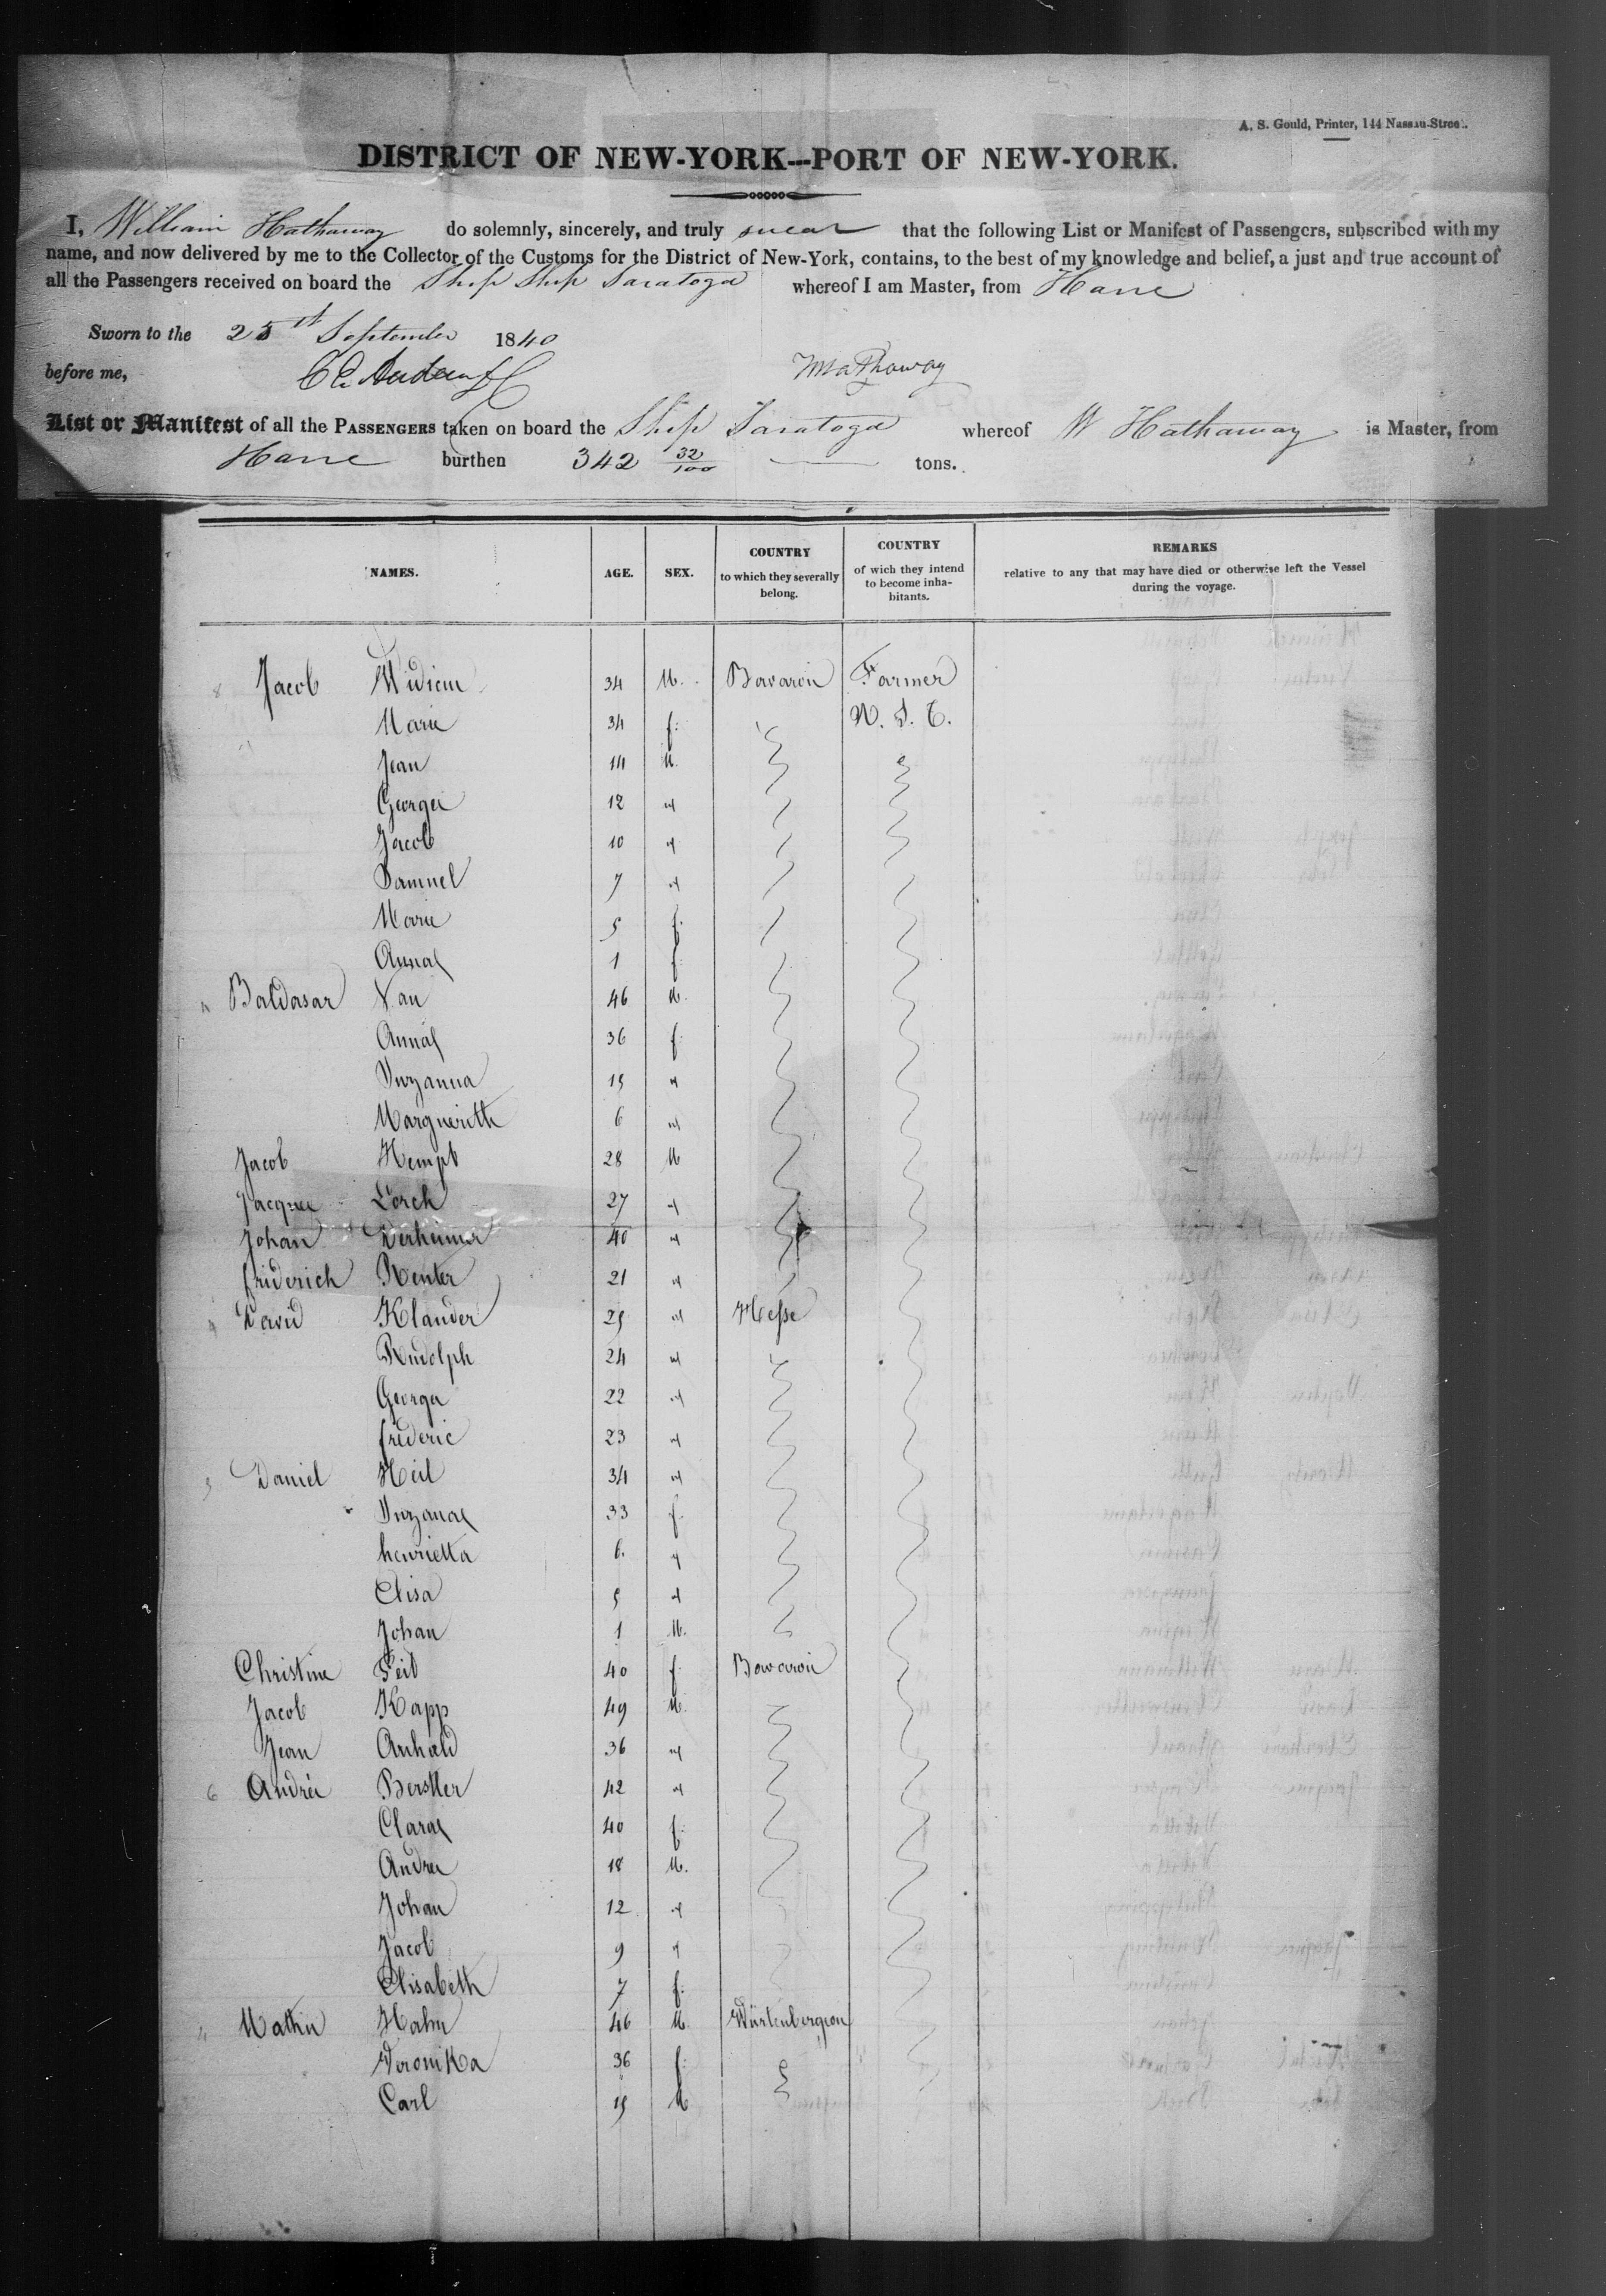 A. S. Gould, Printer, 144 Nassau-Street.
DISTRICT OF NEW-YORK--PORT OF NEW-YORK.
I, William Hathaway do solemnly, sincerely, and truly swear that the following List or Manifest of Passengers, subscribed with my
name, and now delivered by me to the Collector of the Customs for the District of New-York, contains, to the best of my knowledge and belief, a just and true account of
all the Passengers received on board the Ship Ship Saratoga whereof I am Master, from Havre
Sworn to the 25th September 1840
before me,
Wm Hathaway
List or Manifest of all the PASSENGERS taken on board the Ship Saratoga whereof W Hathaway is Master, from
Havre burthen 342 32/100 tons.
NAMES. AGE. SEX. COUNTRY to which they severally belong. COUNTRY of wich they intend to become inhabitants. REMARKS relative to any that may have died or otherwise left the Vessel during the voyage.
8 Jacob 34 M. Bavaroir Farmer
Marie 34 f. N. S. C.
Jean 14 M.
George 12 "
Jacob 10 "
Samuel 7 "
Marie 5 f.
Anna 1 f.
4 Baldasar Nau 46 M.
Anna 36 f.
Suzanna 15 "
Marguerith 6 "
Jacob Hempt 28 M
Jacques Lorch 27 "
Johan Derheimer 40 "
friderich Renter 21 "
4 David Klander 25 " Hesse
Rudolph 24 "
George 22 "
frederic 23 "
5 Daniel Heil 34 "
Suzana 33 f.
henrietta 6. "
Elisa 5 "
Johan 1 M.
Christine Feit 40 f Bavaroir
Jacob Kapp 49 M.
Jean Anhald 36 "
6 André Berstler 42 "
Clara 40 f.
Andre 18 M.
Johan 12 "
Jacob 9 "
Elisabeth 7 f.
4 Mathis Hahn 46 M. Würtenbergeon
Veronika 36 f.
Carl 15 M